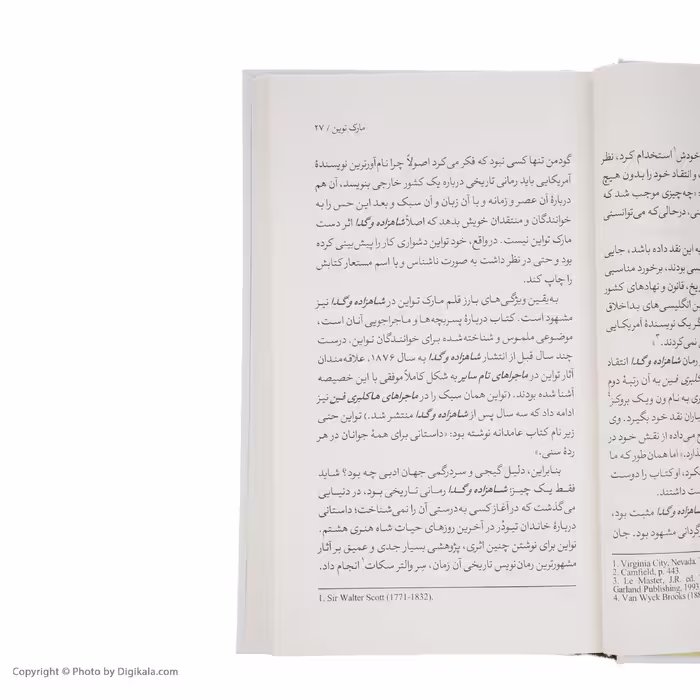 مارک توین / ۲۷
گودمن تنها کسی نبود که فکر می‌کرد اصولاً چرا نام‌آورترین نویسندهٔ
آمریکایی باید رمانی تاریخی درباره یک کشور خارجی بنویسد، آن هم
دربارهٔ آن عصر و زمانه و با آن زبان و آن سبک و بعد این حس را به
خوانندگان و منتقدان خویش بدهد که اصلاً شاهزاده و گدا اثر دست
مارک تواین نیست. درواقع، خود تواین دشواری کار را پیش‌بینی کرده
بود و حتی در نظر داشت به صورت ناشناس و یا اسم مستعار کتابش
را چاپ کند.
به‌یقین ویژگی‌های بارز قلم مارک تواین در شاهزاده و گدا نیز
مشهود است. کتاب دربارهٔ پسربچه‌ها و ماجراجویی آنان است،
موضوعی ملموس و شناخته‌شده برای خوانندگان تواین. درست
چند سال قبل از انتشار شاهزاده و گدا به سال ۱۸۷۶، علاقه‌مندان
آثار تواین در ماجراهای تام سایر به شکل کاملاً موفقی با این خصیصه
آشنا شده بودند. (تواین همان سبک را در ماجراهای هاکلبری فین نیز
ادامه داد که سه سال پس از شاهزاده و گدا منتشر شد.) تواین حتی
زیر نام کتاب عامدانه نوشته بود: «داستانی برای همهٔ جوانان در هر
ردهٔ سنی.»
بنابراین، دلیل گیجی و سردرگمی جهان ادبی چه بود؟ شاید
فقط یک چیز: شاهزاده و گدا رمانی تاریخی بود، در دنیایی
می‌گذشت که در آغاز کسی به‌درستی آن را نمی‌شناخت؛ داستانی
دربارهٔ خاندان تیودُر در آخرین روزهای حیات شاه هنری هشتم.
تواین برای نوشتن چنین اثری، پژوهشی بسیار جدی و عمیق بر آثار
مشهورترین رمان‌نویس تاریخی آن زمان، سِر والتر سکات¹ انجام داد.
1. Sir Walter Scott (1771-1832).
خودش¹ استخدام کرد، نظر
و انتقاد خود را بدون هیچ
«چه‌چیزی موجب شد که
درحالی‌که می‌توانستی
به این نقد داده باشد، جایی
بودند، برخورد مناسبی
قانون و نهادهای کشور
انگلیسی‌های بداخلاق
یک نویسندهٔ آمریکایی
نمی‌کردند.»³
رمان شاهزاده و گدا انتقاد
هاکلبری فین به آن رتبهٔ دوم
به نام ون ویک بروکز⁴
نقد خود بگیرد. وی
می‌داده از نقش خود در
اما همان طور که ما
او کتاب را دوست
داشتند.
شاهزاده و گدا مثبت بود،
مشهود بود. جان
1. Virginia City, Nevada.
2. Camfield, p. 443.
3. Le Master, J.R. ed.
Garland Publishing, 1993
4. Van Wyck Brooks (188
Copyright © Photo by Digikala.com